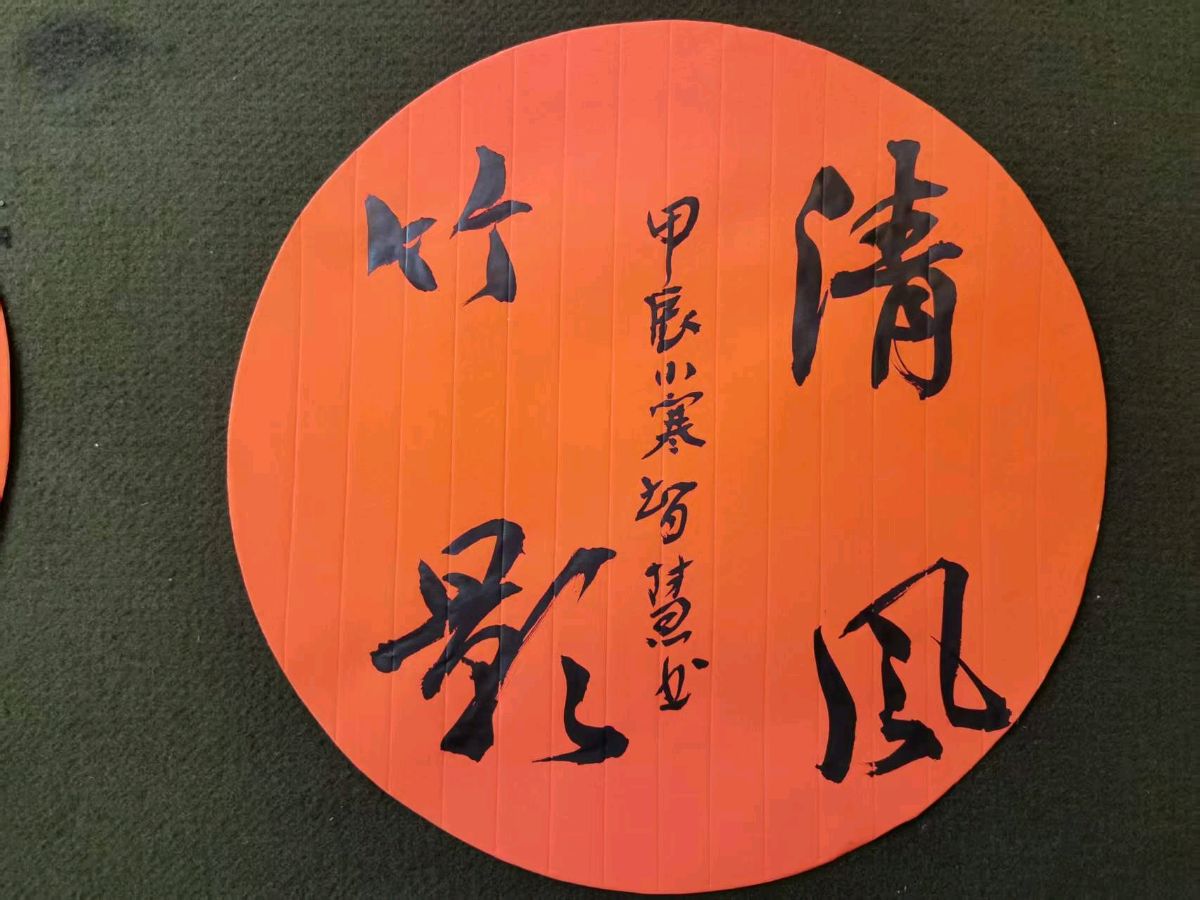 清风
竹影
甲辰小寒智慧书